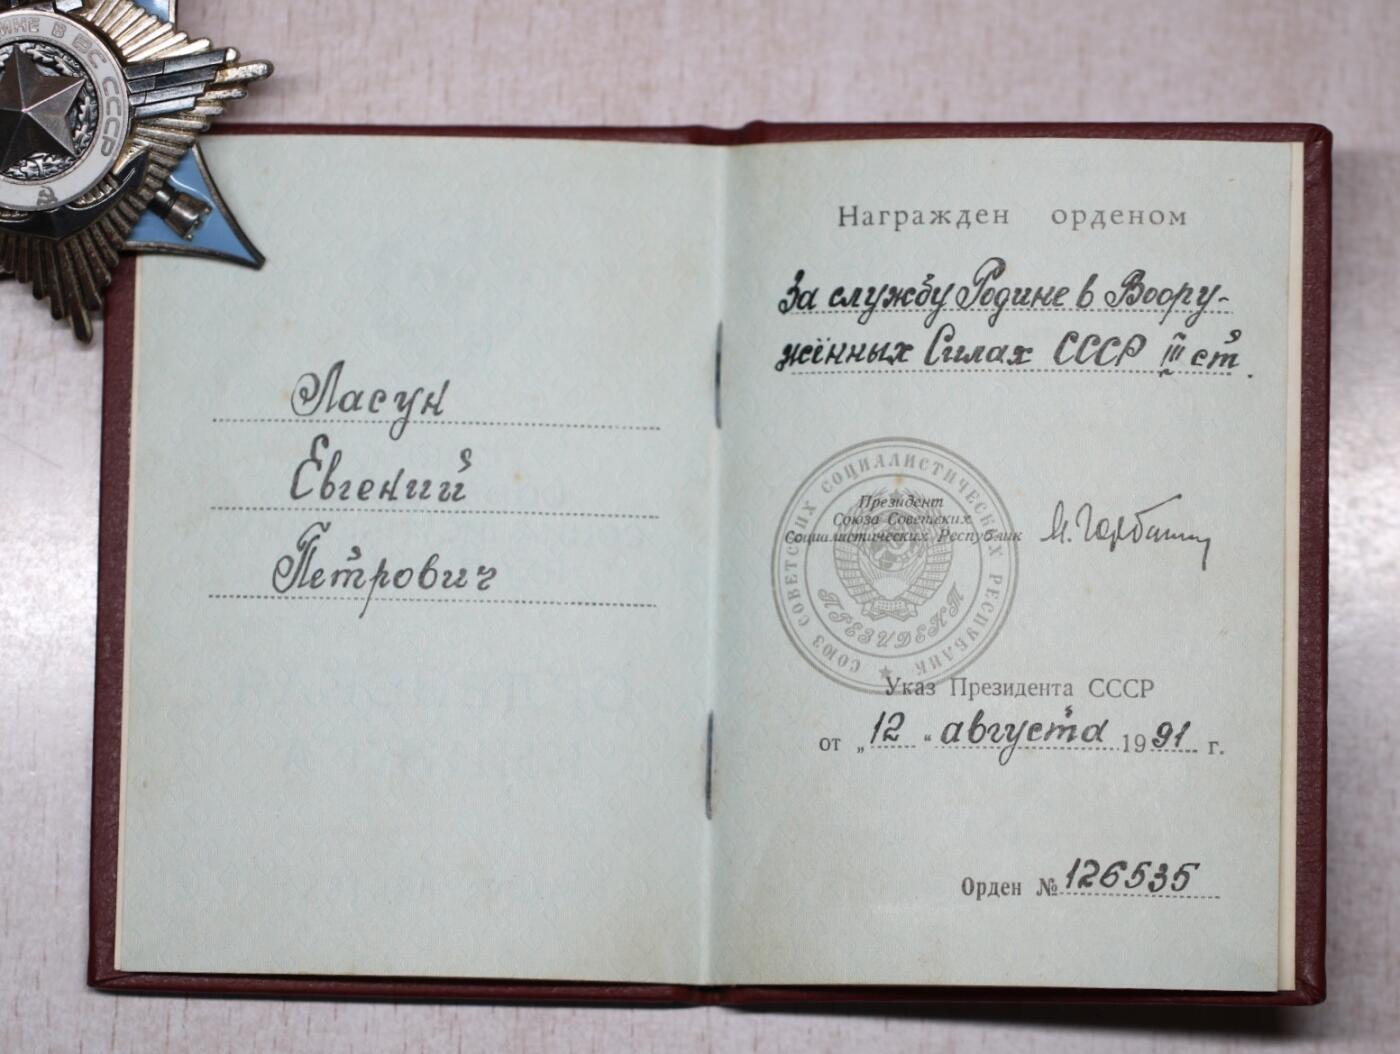 МНЕ В ВС СССР
Ласун
Евгений
Петрович
Награжден орденом
За службу Родине в Воору-
жённых Силах СССР III ст.
СОЮЗ СОВЕТСКИХ СОЦИАЛИСТИЧЕСКИХ РЕСПУБЛИК
Президент
Союза Советских
Социалистических Республик
М. Горбачев
ПРЕЗИДЕНТ
Указ Президента СССР
от „12“ августа 1991 г.
Орден № 126535